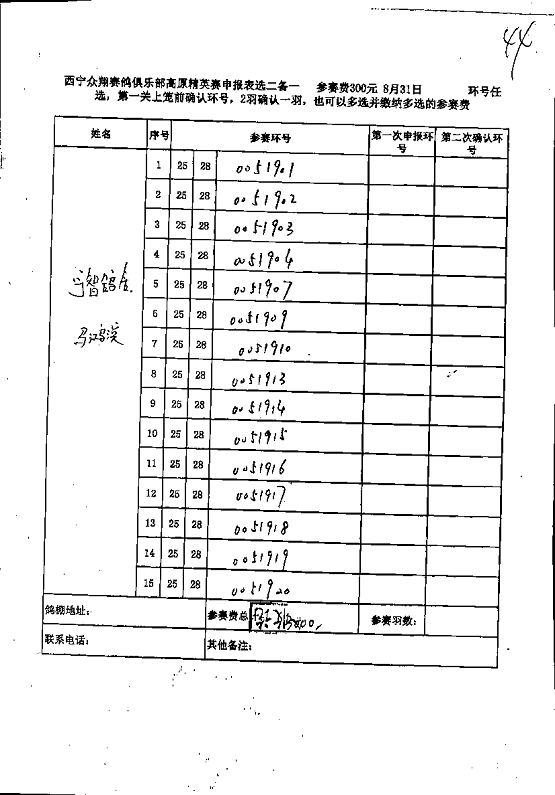 44
西宁众翔赛鸽俱乐部高原精英赛申报表选二备一 参赛费300元 8月31日 环号任
选，第一关上笼前确认环号，2羽确认一羽，也可以多选并缴纳多选的参赛费
姓名 序号 参赛环号 第一次申报环号 第二次确认环号
1 25 28 0051901
2 25 28 0051902
3 25 28 0051903
4 25 28 0051904
5 25 28 0051907
6 25 28 0051909
7 25 28 0051910
8 25 28 0051913
9 25 28 0051914
10 25 28 0051915
11 25 28 0051916
12 25 28 0051917
13 25 28 0051918
14 25 28 0051919
15 25 28 0051920
鸽棚地址： 参赛费总 参赛羽数：
联系电话： 其他备注：